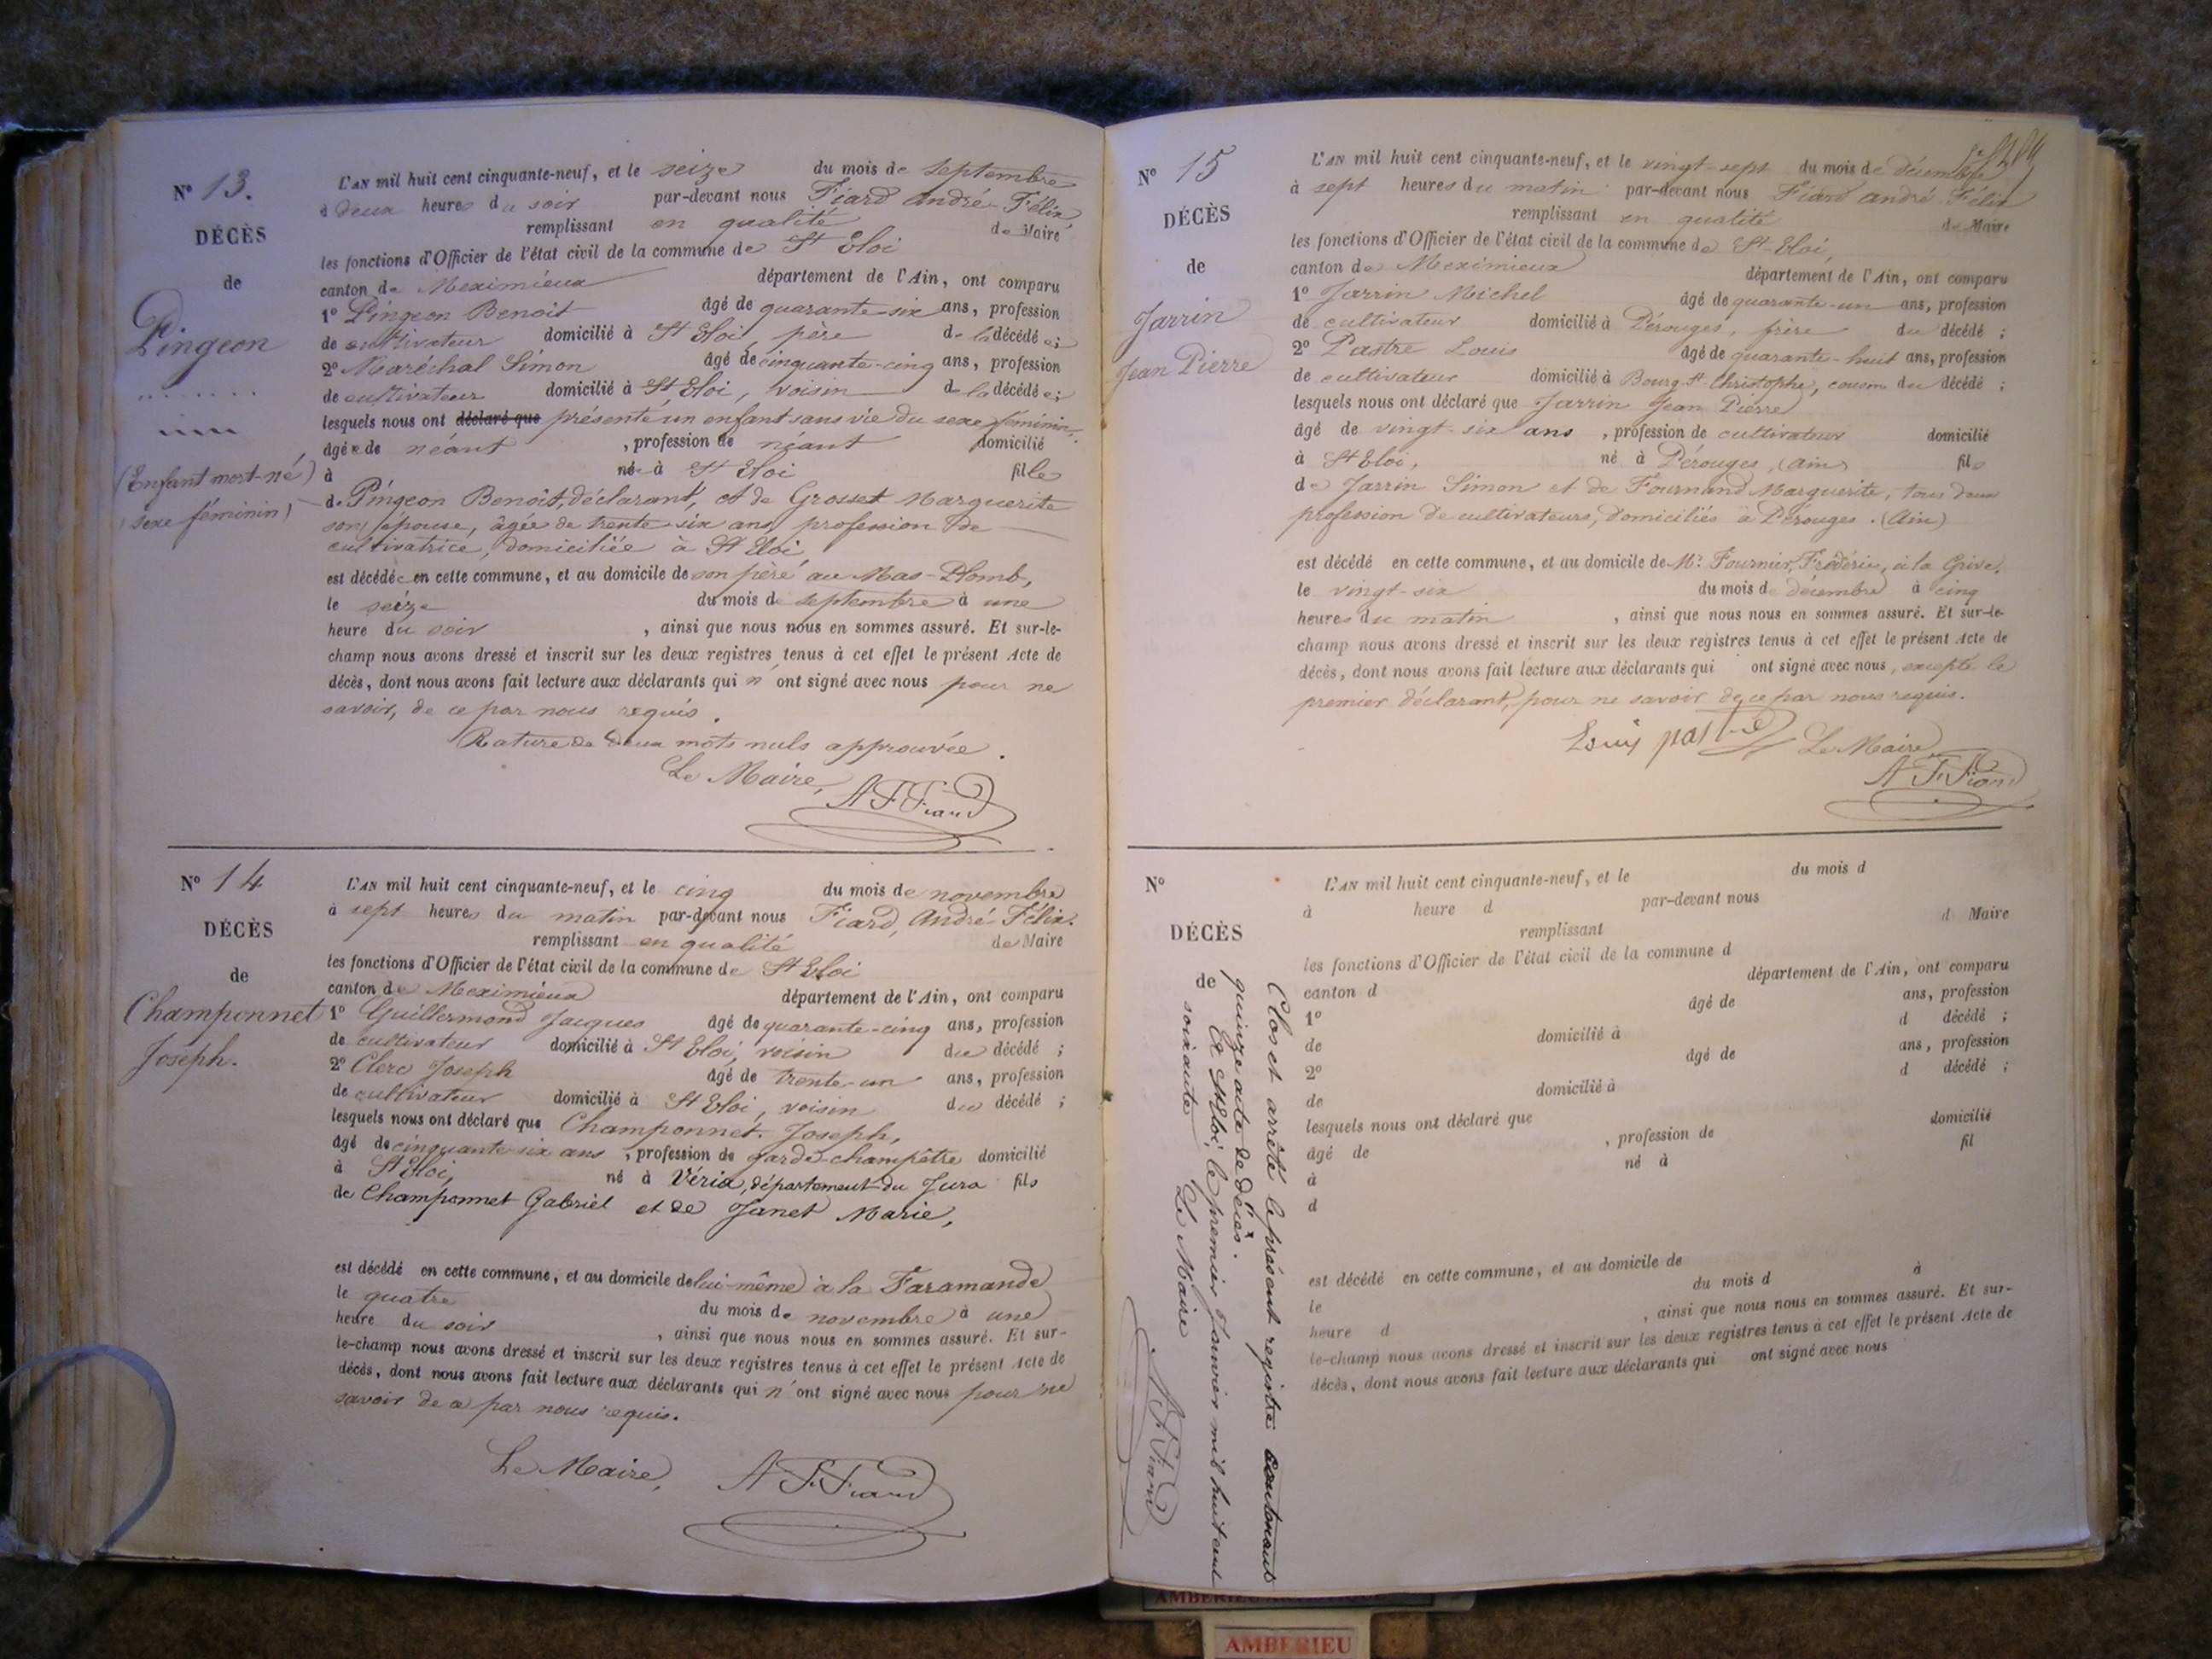 N° 13.
DÉCÈS
de
Pingeon
(Enfant mort-né)
(sexe féminin)
L'AN mil huit cent cinquante-neuf, et le seize du mois de Septembre
à deux heures du soir par-devant nous Fiard André-Félix,
remplissant en qualité de Maire
les fonctions d'Officier de l'état civil de la commune de St Eloi
canton de Meximieux département de l'Ain, ont comparu
1° Pingeon Benoit âgé de quarante-six ans, profession
de cultivateur domicilié à St Eloi, père de la décédée;
2° Maréchal Simon âgé de cinquante-cinq ans, profession
de cultivateur domicilié à St Eloi, voisin de la décédée;
lesquels nous ont déclaré que présenté un enfant sans vie du sexe féminin,
âgée de néant , profession de néant domicilié
à née à St Eloi fille
de Pingeon Benoit, déclarant, et de Grosset Marguerite
son épouse, âgée de trente-six ans, profession de
cultivatrice, domiciliée à St Eloi
est décédée en cette commune, et au domicile de son père au Mas-Plomb,
le seize du mois de septembre à une
heure du soir , ainsi que nous nous en sommes assuré. Et sur-le-
champ nous avons dressé et inscrit sur les deux registres tenus à cet effet le présent Acte de
décès, dont nous avons fait lecture aux déclarants qui n'ont signé avec nous pour ne
savoir, de ce par nous requis.
Rature de deux mots nuls approuvée.
Le Maire,
A F Fiard
N° 14
DÉCÈS
de
Champonnet
Joseph.
L'AN mil huit cent cinquante-neuf, et le cinq du mois de novembre
à sept heures du matin par-devant nous Fiard, André-Félix.
remplissant en qualité de Maire
les fonctions d'Officier de l'état civil de la commune de St Eloi
canton de Meximieux département de l'Ain, ont comparu
1° Guillermond Jacques âgé de quarante-cinq ans, profession
de cultivateur domicilié à St Eloi, voisin du décédé ;
2° Clerc Joseph âgé de trente-un ans, profession
de cultivateur domicilié à St Eloi, voisin du décédé ;
lesquels nous ont déclaré que Champonnet Joseph,
âgé de cinquante-six ans , profession de garde-champêtre domicilié
à St Eloi, né à Véria, département du Jura fils
de Champonnet Gabriel et de Janet Marie,
est décédé en cette commune, et au domicile de lui-même à la Faramande
le quatre du mois de novembre à une
heure du soir , ainsi que nous nous en sommes assuré. Et sur-
le-champ nous avons dressé et inscrit sur les deux registres tenus à cet effet le présent Acte de
décès, dont nous avons fait lecture aux déclarants qui n'ont signé avec nous pour ne
savoir de ce par nous requis.
Le Maire,
A F Fiard
N° 15
DÉCÈS
de
Jarrin
Jean Pierre
L'AN mil huit cent cinquante-neuf, et le vingt-sept du mois de décembre
à sept heures du matin par-devant nous Fiard André Félix
remplissant en qualité de Maire
les fonctions d'Officier de l'état civil de la commune de St Eloi,
canton de Meximieux département de l'Ain, ont comparu
1° Jarrin Michel âgé de quarante-un ans, profession
de cultivateur domicilié à Pérouges, frère du décédé ;
2° Pastre Louis âgé de quarante-huit ans, profession
de cultivateur domicilié à Bourg-St-Christophe, cousin du décédé ;
lesquels nous ont déclaré que Jarrin Jean Pierre
âgé de vingt-six ans , profession de cultivateur domicilié
à St Eloi, né à Pérouges, (Ain) fils
de Jarrin Simon et de Fournand Marguerite, tous deux
profession de cultivateurs, domiciliés à Pérouges. (Ain)
est décédé en cette commune, et au domicile de Mr. Fournier, Frédéric, à la Grive,
le vingt-six du mois de décembre à cinq
heures du matin , ainsi que nous nous en sommes assuré. Et sur-le-
champ nous avons dressé et inscrit sur les deux registres tenus à cet effet le présent Acte de
décès, dont nous avons fait lecture aux déclarants qui ont signé avec nous, excepté le
premier déclarant, pour ne savoir de ce par nous requis.
Louis pastre Le Maire
A F Fiard
N°
DÉCÈS
de
L'AN mil huit cent cinquante-neuf, et le du mois d
à heure d par-devant nous
remplissant d Maire
les fonctions d'Officier de l'état civil de la commune d
canton d département de l'Ain, ont comparu
1° âgé de ans, profession
de domicilié à d décédé ;
2° âgé de ans, profession
de domicilié à d décédé ;
lesquels nous ont déclaré que
âgé de , profession de domicilié
à né à fil
d
est décédé en cette commune, et au domicile de
le du mois d à
heure d , ainsi que nous nous en sommes assuré. Et sur-
le-champ nous avons dressé et inscrit sur les deux registres tenus à cet effet le présent Acte de
décès, dont nous avons fait lecture aux déclarants qui ont signé avec nous
Clos et arrêté le présent registre contenant
quinze actes de décès.
A St Eloi, le premier Janvier mil huit cent
soixante Le Maire
A F Fiard
AMBERIEU
AMBERIEU